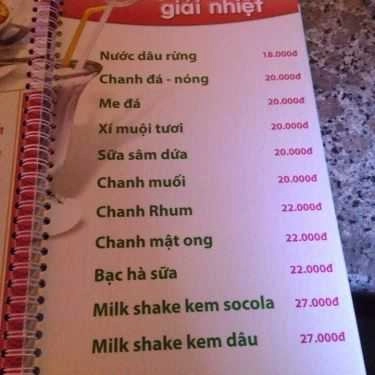 giải nhiệt
Nước dâu rừng 18.000đ
Chanh đá - nóng 20.000đ
Me đá 20.000đ
Xí muội tươi 20.000đ
Sữa sâm dứa 20.000đ
Chanh muối 20.000đ
Chanh Rhum 22.000đ
Chanh mật ong 22.000đ
Bạc hà sữa 22.000đ
Milk shake kem socola 27.000đ
Milk shake kem dâu 27.000đ